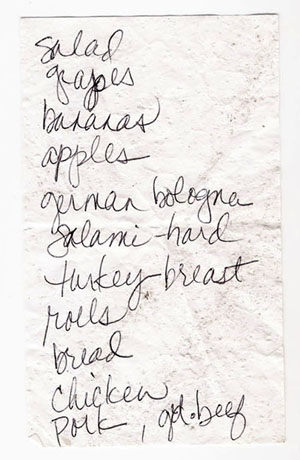 salad
grapes
bananas
apples
german bologna
salami-hard
turkey-breast
rolls
bread
chicken
pork, gd.beef